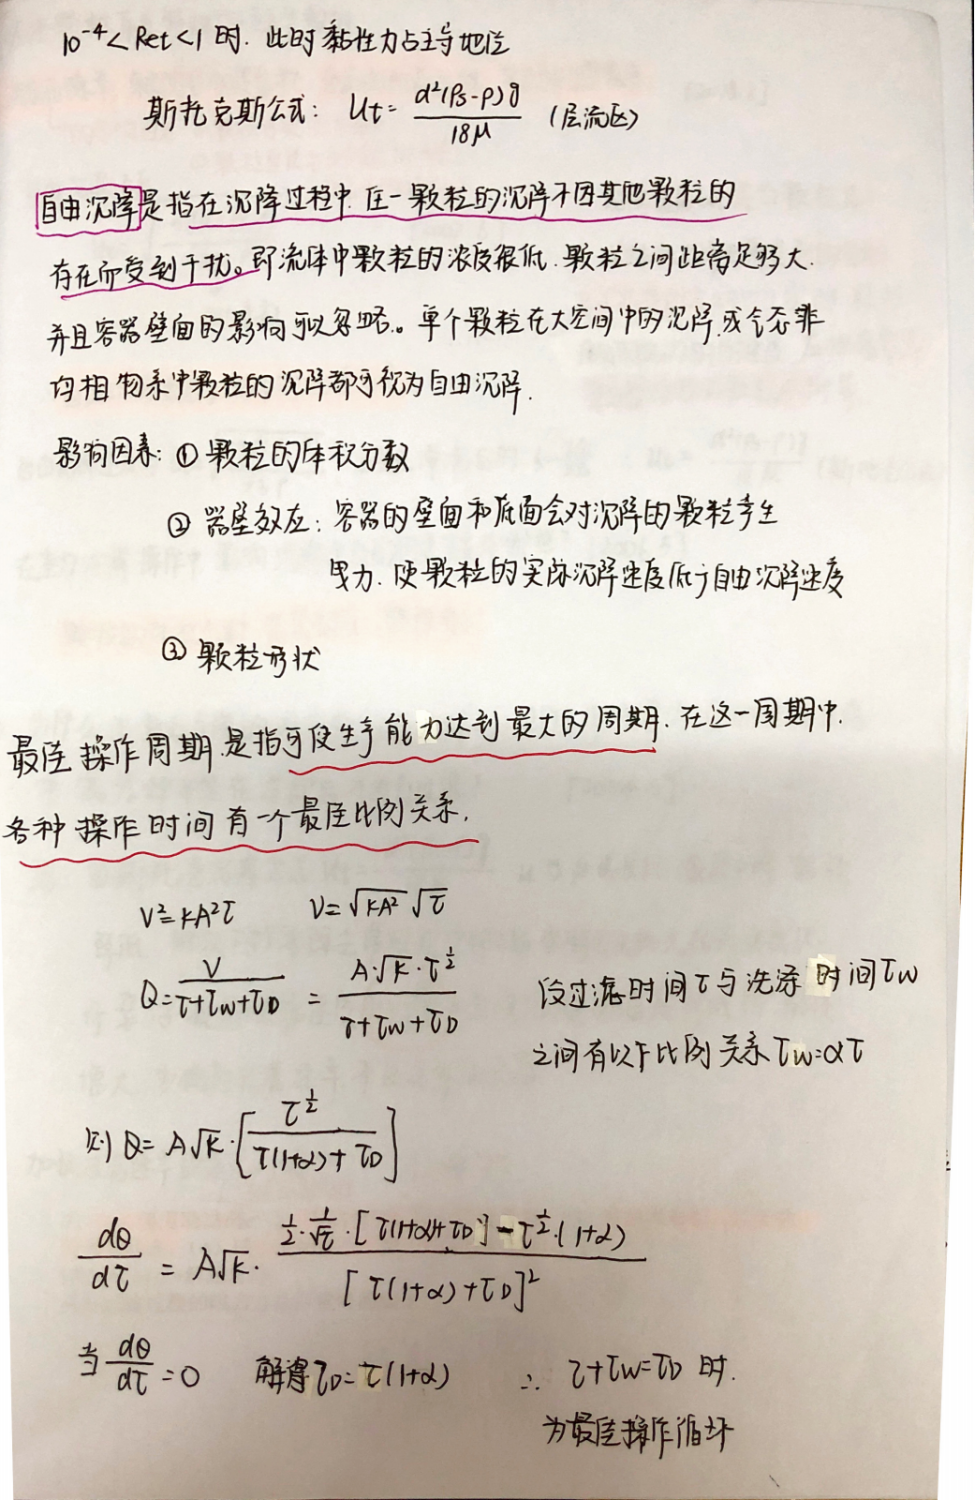 10⁻⁴<Ret<1时. 此时黏性力占主导地位
斯托克斯公式: Ut= d²(ρs-ρ)g / 18μ (层流区)
自由沉降是指在沉降过程中.任一颗粒的沉降不因其他颗粒的
存在而受到干扰。即流体中颗粒的浓度很低.颗粒之间距离足够大.
并且容器壁面的影响可以忽略。单个颗粒在大空间中的沉降或气态非
均相物系中颗粒的沉降都可视为自由沉降.
影响因素: ① 颗粒的体积分数
② 器壁效应: 容器的壁面和底面会对沉降的颗粒产生
曳力.使颗粒的实际沉降速度低于自由沉降速度
③ 颗粒形状
最佳操作周期是指可使生产能力达到最大的周期.在这一周期中.
各种操作时间有一个最佳比例关系.
V²=KA²τ V=√KA² √τ
Q= V / τ+τw+τD = A·√K·τ^½ / τ+τw+τD 设过滤时间τ与洗涤时间τw
之间有以下比例关系τw=ατ
则 Q= A√K·[ τ^½ / τ(1+α)+τD ]
dQ/dτ = A√K· ½·1/√τ·[τ(1+α)+τD]-τ^½·(1+α) / [τ(1+α)+τD]²
当 dQ/dτ =0 解得τD=τ(1+α) ∴ τ+τw=τD 时.
为最佳操作循环